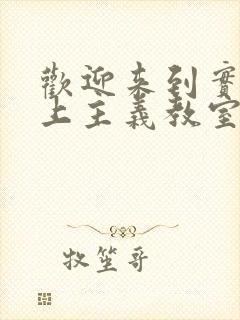 歡迎來到實
上主義教室
牧笙哥